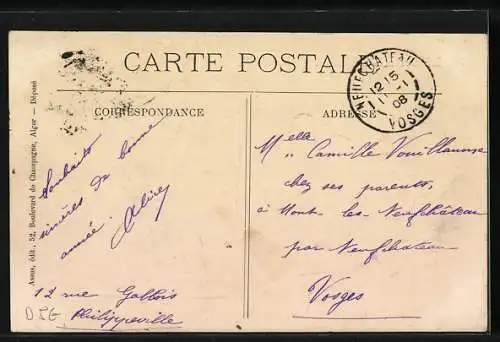 CARTE POSTALE
NEUFCHATEAU
12 15
11 - 1
08
VOSGES
CORRESPONDANCE
ADRESSE
Assus, édit. 52, Boulevard de Champagne, Alger — Déposé
Souhaits
sincères de bonne
année.
12 rue Galbois
Philippeville
D 56
Melle
" Camille
chez ses parents,
à Mont les Neufchâteau
par Neufchateau
Vosges